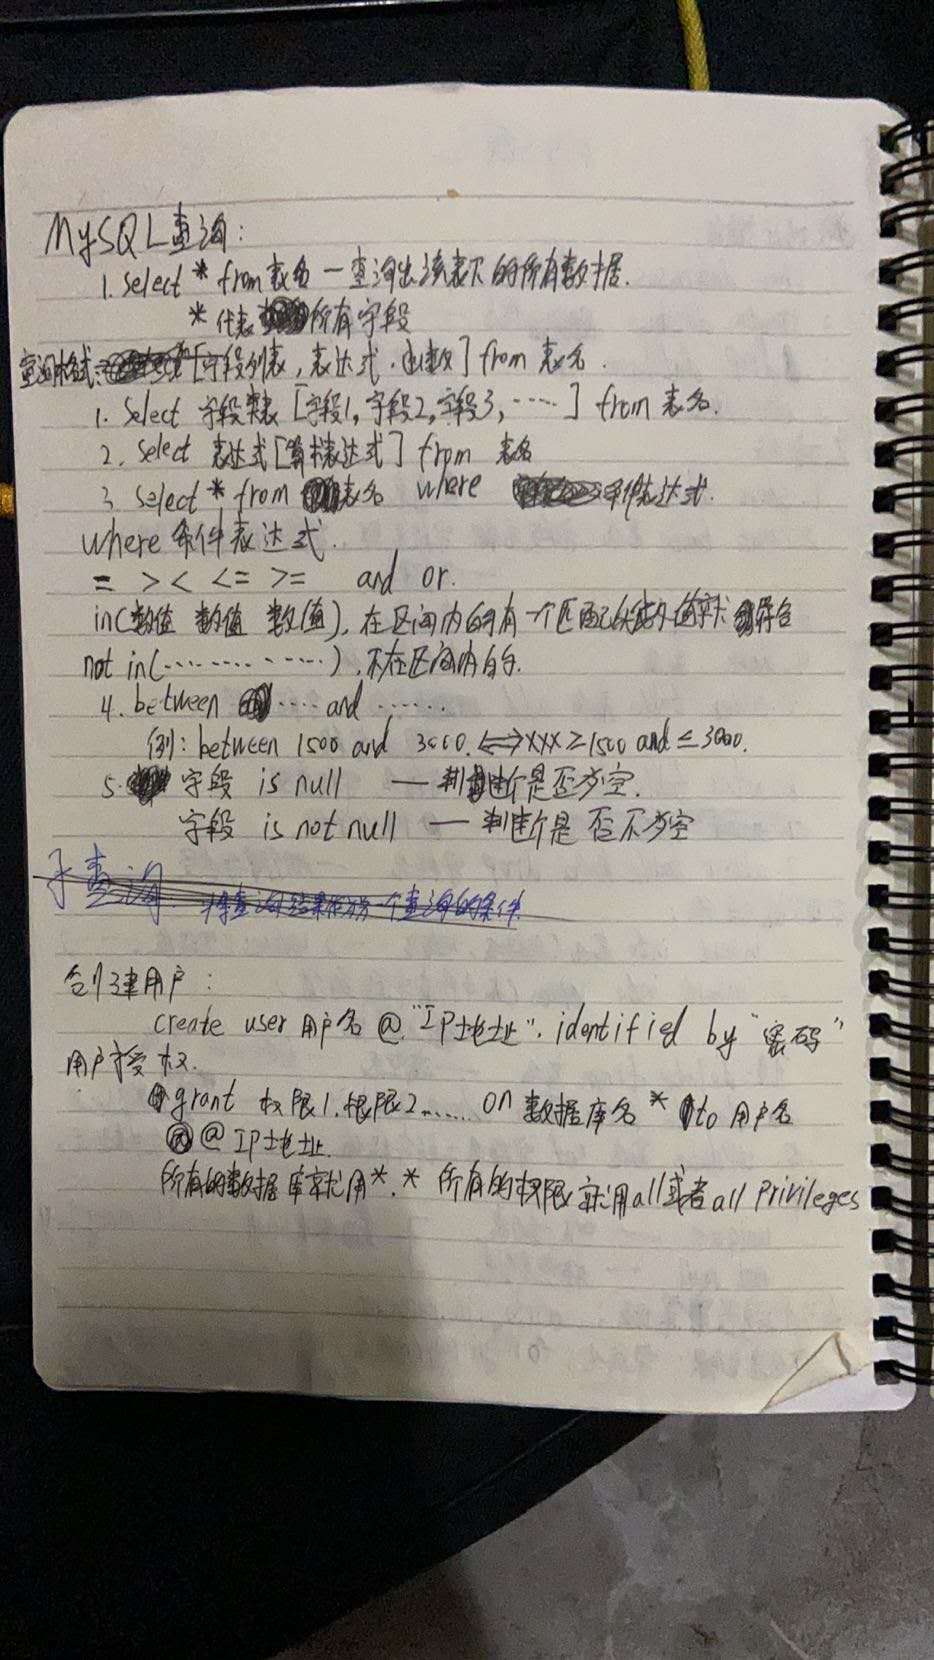 MySQL查询:
1. select * from 表名 — 查询出该表下的所有数据.
* 代表 所有字段
查询格式: [字段列表, 表达式, 函数] from 表名.
1. Select 字段列表 [字段1, 字段2, 字段3, ……] from 表名.
2. select 表达式 [算术表达式] from 表名
3 select * from 表名 where 条件表达式.
where 条件表达式.
= > < <= >= and or.
in(数值 数值 数值), 在区间内的有一个匹配 值就 符合
not in(…………), 不在区间内的.
4. between …… and ……
例: between 1500 and 3000. ⟺ xxx ≥1500 and ≤3000.
5. 字段 is null — 判断是否为空.
字段 is not null — 判断是否不为空
子查询 将查询结果作为另一个查询的条件
创建用户:
create user 用户名 @ "IP地址". identified by "密码"
用户授权.
grant 权限1, 权限2…… on 数据库名 * to 用户名
@ IP地址.
所有的数据库就用*.* 所有的权限就用all或者all privileges